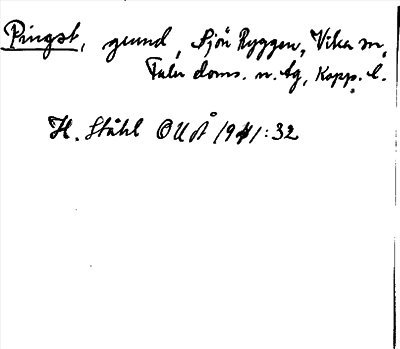 Pingst, grund, Sjön Ryggen, Vika sn,
Falu doms. n. tg, Kopp. l.
H. Ståhl OUÅ 1941:32